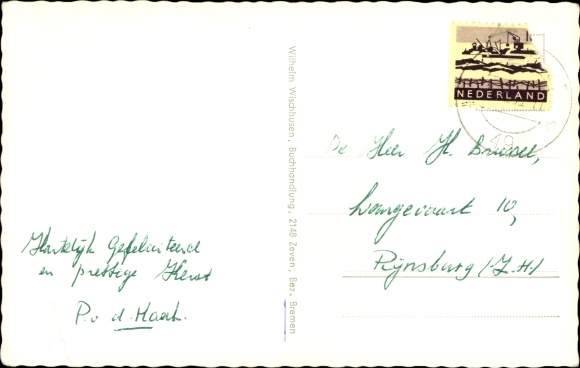 Hartelijk Gefeliciteerd
en prettige Kerst
P. v. d. Maark.
Wilhelm Wischhusen, Buchhandlung, 2148 Zeven, Bez. Bremen
NEDERLAND
De Heer H. Brussee,
Langevaart 10,
Rijnsburg (Z.H.)